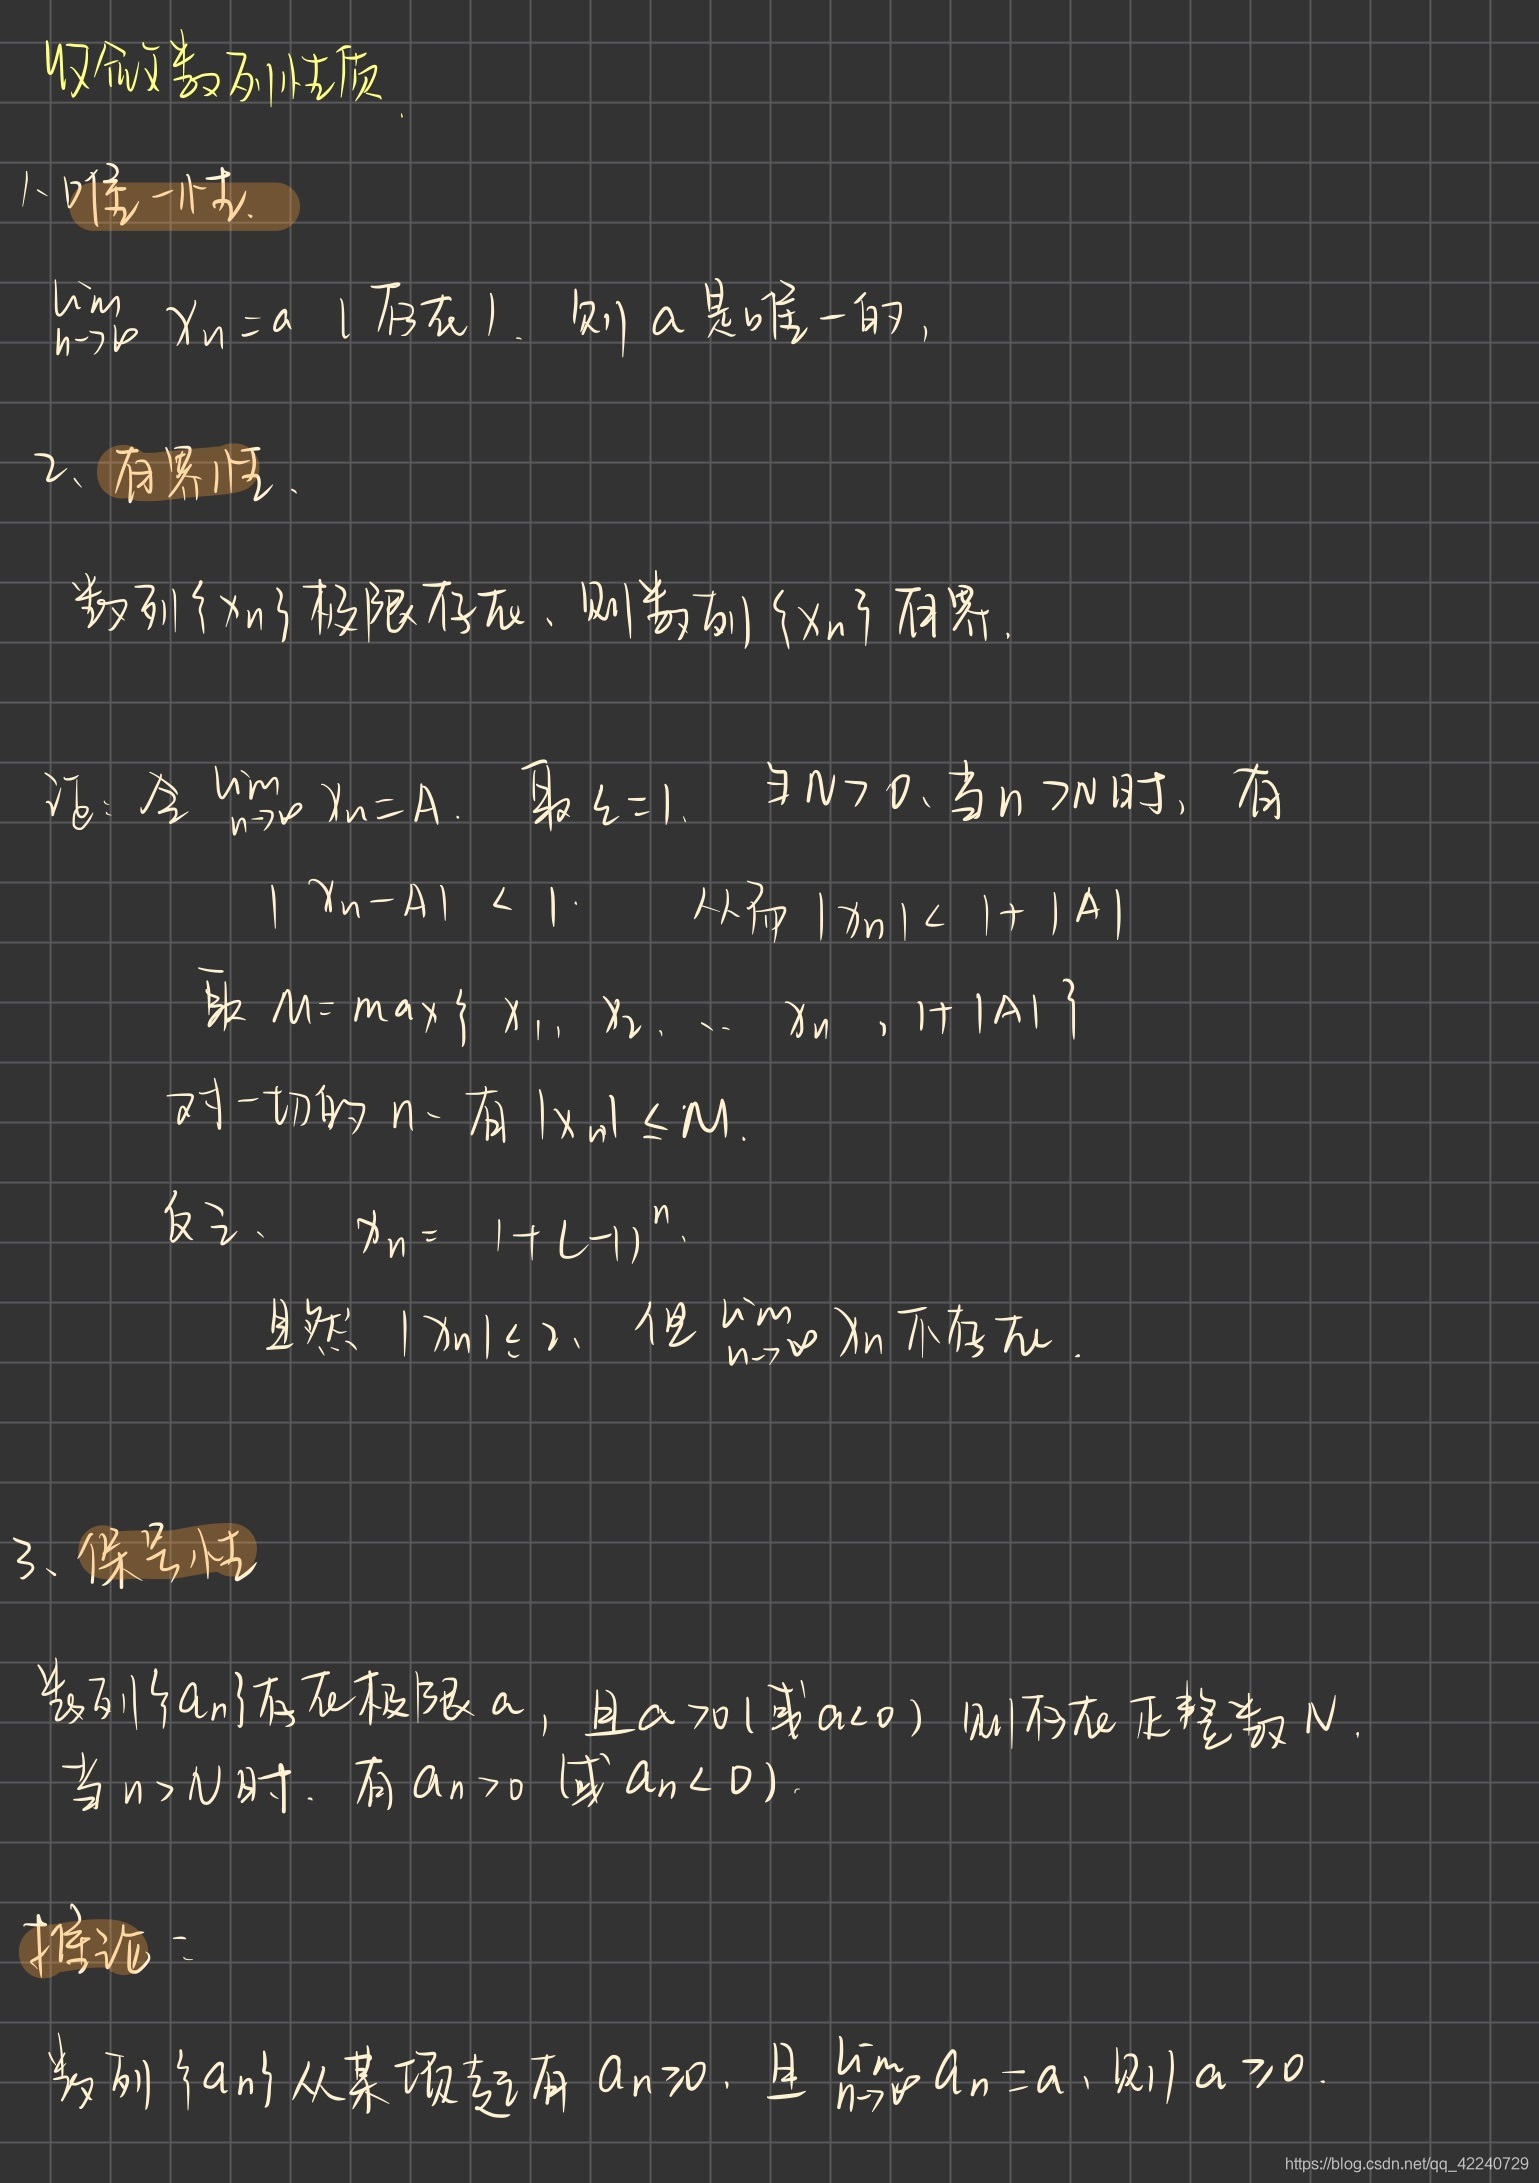 收敛数列性质.
1、唯一性.
lim n→∞ xn = a (存在). 则 a 是唯一的,
2、有界性、
数列{xn}极限存在、则数列{xn}有界.
证: 令 lim n→∞ xn = A. 取 ε=1. ∃N>0、当n>N时, 有
|xn-A| < 1. 从而 |xn| < 1+|A|
取 M = max{ x1, x2, … xn , 1+|A| }
对一切的 n、有 |xn| ≤ M.
反之、 xn = 1+(-1)^n.
显然 |xn| ≤ 2、 但 lim n→∞ xn 不存在.
3、保号性
数列{an}存在极限 a, 且a>0(或a<0) 则存在正整数N.
当n>N时. 有 an>0 (或 an<0).
推论:
数列{an}从某项起有 an≥0. 且 lim n→∞ an = a、则 a≥0.
https://blog.csdn.net/qq_42240729